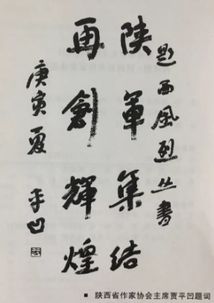 题西风烈丛书
陕军集结
再創輝煌
庚寅夏
平凹
■ 陕西省作家协会主席贾平凹题词